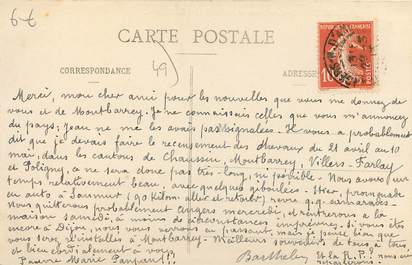 6 €
CARTE POSTALE
CORRESPONDANCE
49
ADRESSE
RÉPUBLIQUE FRANÇAISE
10
Merci, mon cher ami pour les nouvelles que vous me donnez de
vous et de Montbarrey. Je ne connaissais celles que vous m'annoncez
du pays; Jean ne me les avais pas signalées. Il vous a probablement
dit que je devais faire le recensement des chevaux du 21 avril au 10
mai, dans les cantons de Chaussin, Montbarrey, Villers-Farlay
et Poligny, ce ne sera donc pas très-long, ni pénible. Nous avons un
temps relativement beau, avec quelques giboulées. Hier, promenade
en auto à Saumur (90 kilom. aller et retour)
Nous quitterons probablement Angers mercredi, et rentrerons à la
maison samedi, à moins de circonstances imprévues; si vous êtes
encore à Dijon, nous vous verrons au passant, mais je pense bien que
vous serez réinstallés à Montbarrey. Meilleurs souvenirs de tous, à tous
et bien cordialement à vous
Pauvre Marie
Bartheley